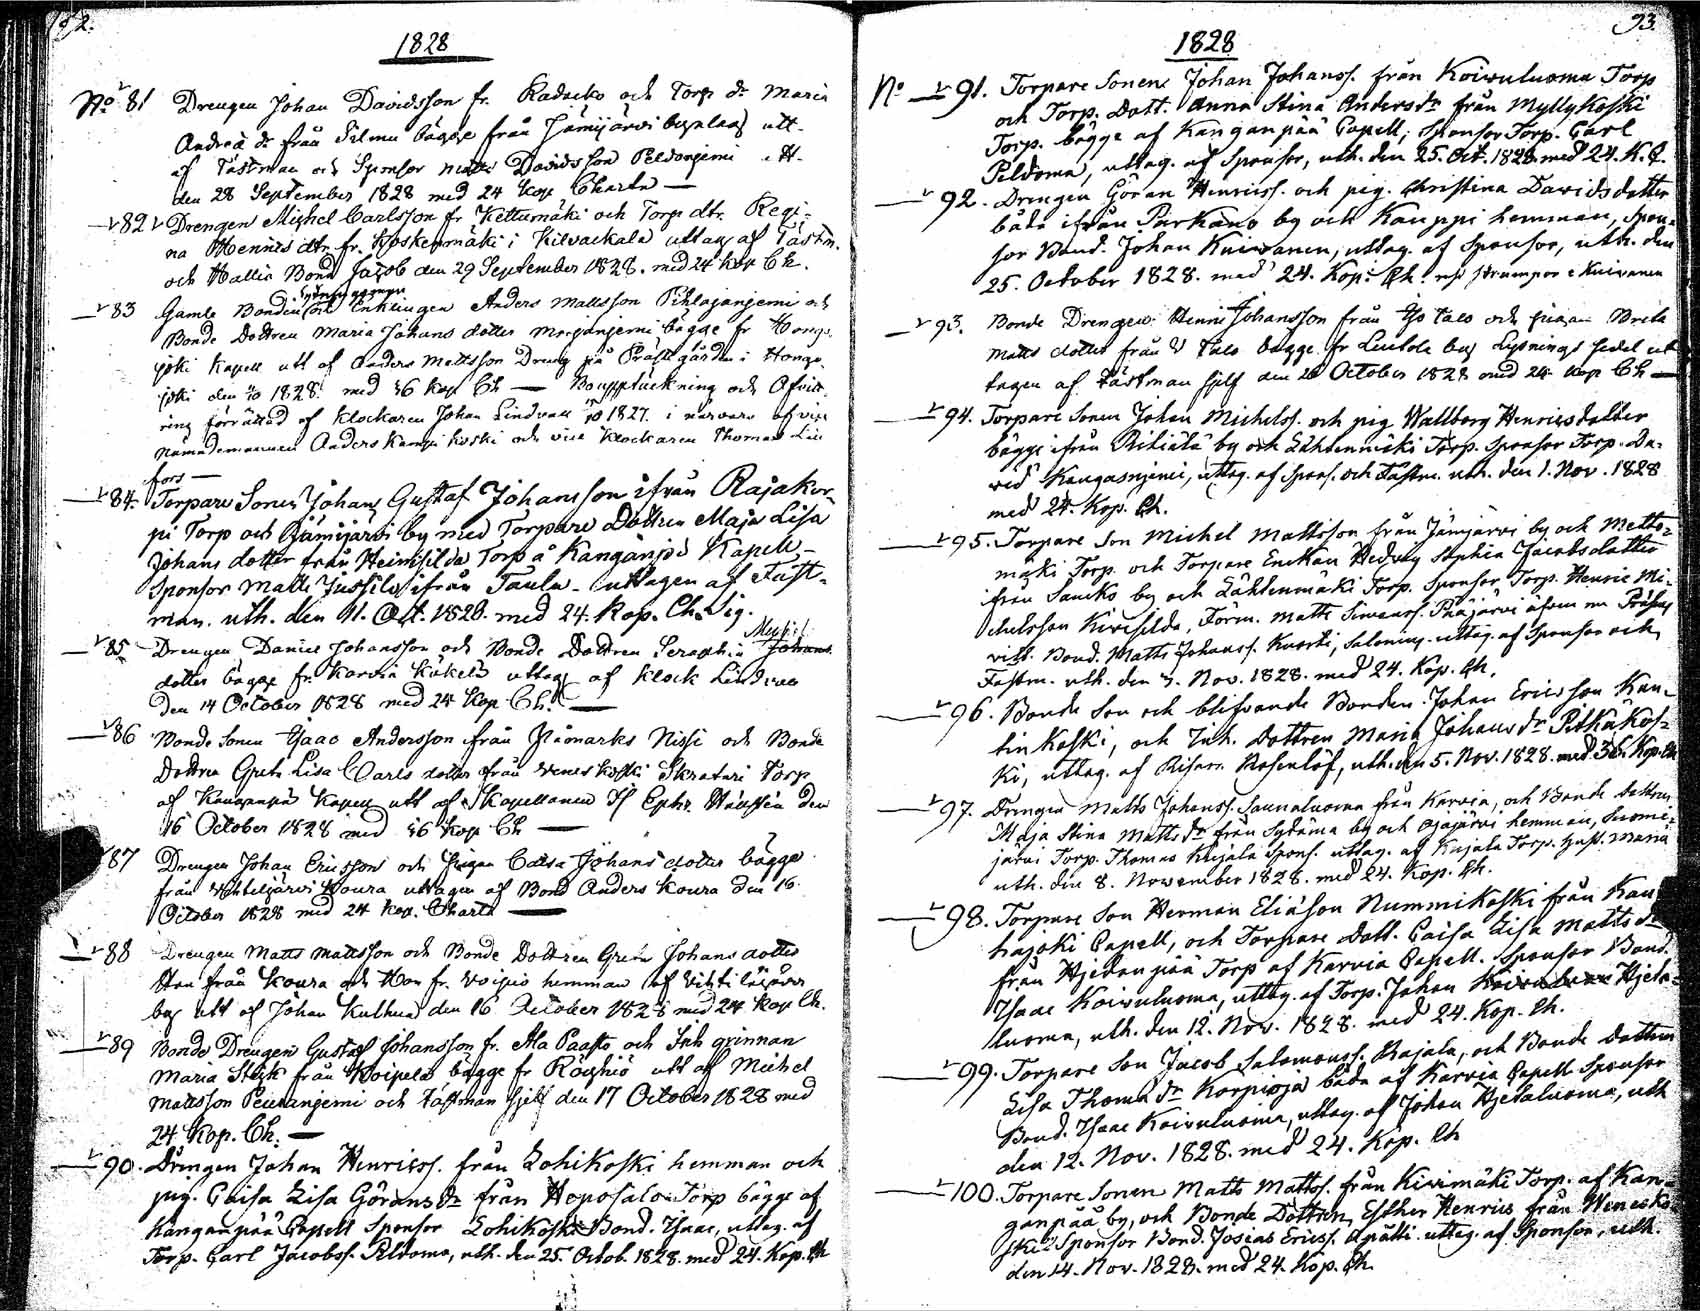 1828
No 81 Drengen Johan Davidsson fr. Kadacko och Torp. dr Maria
Andreæ dr från Silmu bägge från Jämijärvi by utt.
af Fästman och Sponsor Matts Davidsson Peldonjemi
den 28 September 1828 med 24 Kop Charta —
82 Drengen Michel Carlsson fr Kettumäki och Torp dtr. Regi-
na Hennes dtr. fr. Koskenmäki i Kilvackala uttag af Fästm.
och Hallia Bond Jacob den 29 September 1828. med 24 Kop Ch.
83 Gamle Bonden Enklingen Anders Mattsson Pihlajanjemi och
Bonde Dottren Maria Johans dotter bägge fr Hongo-
joki Kapell utt af Anders Mattsson Dreng på Prästgården i Hongo-
joki den 1828 med 36 Kop Ch — Bouppteckning och Afvitt-
ring förrättad af Klockaren Johan Lindvall 1827. i närvaro af vice
nämndemannen Anders Kampikoski och vice Klockaren Thomas Lin
fors —
84. Torpare Sonen Johan Gustaf Johansson ifrån Rajakor-
pi Torp och Jämijärvi by med Torpare Dottren Maja Lisa
Johans dotter från Heinisilda Torp å Kanganpä Kapell —
Sponsor Matts Jussila ifrån Taula - uttagen af Fäst-
man. uth. den 11. Oct. 1828. med 24. Kop. Ch. Sig.
85 Drengen Daniel Johansson och Bonde Dottren Seraphia Johans
dotter bägge fr. Karvia Käkelä uttag af Klock Lindvall
den 14 October 1828 med 24 Kop. Ch. —
86 Bonde Sonen Isaac Andersson från Påmarks Nissi och Bonde
Dottren Greta Lisa Carls dotter från Veneskoski Skratari Torp
af Kanganpä Kapell utt af Kapellanen H Ephr. den
16 October 1828 med 36 Kop Ch —
87 Drengen Johan Ericsson och Pigan Caisa Johans dotter bägge
från Vihteljärvi Koura uttagen af Bond Anders Koura den 16.
October 1828 med 24 Kop. Charta —
88 Drengen Matts Mattsson och Bonde Dottren Greta Johans dotter
Han från Koura och Hon fr. Voipio hemman af
by utt af Johan Kulhua den 16 October 1828 med 24 Kop Ch.
89 Bonde Drengen Gustaf Johansson fr. Ala Paasto och Inh qvinnan
Maria Stick från Koipela bägge fr Röyhiö utt af Michel
Mattsson Peuranjemi och Fästman sjelf den 17 October 1828 med
24 Kop. Ch. —
90. Drengen Johan Henricss. från Lohikoski hemman och
pig. Caisa Lisa Görans dr från Heposalo Torp bägge af
Kanganpää Capell Sponsor Lohikoski Bond. Isaac, uttag. af
Torp. Carl Jacobss. Peldoma, uth. den 25. Octob. 1828. med 24. Kop. Ch
93.
1828
No 91. Torpare Sonen Johan Johanss. från Koivuluoma Torp
och Torp. Dott. Anna Stina Anders dr från Myllykoski
Torp. bägge af Kanganpää Capell, Sponsor Torp. Carl
Peldoma, uttag. af Sponsor, uth. den 25. Oct. 1828. med 24. K. C.
92. Drengen Göran Henricss. och pig. Christina Davidsdotter
båda ifrån Parkano by och Kauppi hemman, Spon-
sor Bond. Johan Kuivanen, uttag. af Sponsor, uth. den
25. October 1828. med 24. Kop. Ch.
93. Bonde Drengen Henric Johansson från Yjo Talo och pigan Brita
Matts dotter från Talo bägge fr by Lysnings sedel ut
tagen af Fästman sjelf den October 1828 med 24 Kop Ch —
94. Torpare Sonen Johan Michelss. och pig Wallborg Henricsdotter
bägge ifrån by och Lähtenmäki Torp. Sponsor Torp. Da-
vid Kangasnjemi, uttag. af Spons. och Fästm. uth. den 1. Nov. 1828
med 24. Kop. Ch.
95. Torpare Son Michel Mattsson från Jämijärvi by och Metto-
mäki Torp. och Torpare Enckan Hedvig Sophia Jacobsdotter
ifrån Sancko by och Lähtenmäki Torp. Sponsor Torp. Henric Mi-
chelsson Kivisilda, Förm. Matts Simonss. Pääjärvi
vitt. Bond. Matts Johanss. Kuoski, uttag. af Sponsor och
Fästm. uth. den 3. Nov. 1828. med 24. Kop. Ch.
96. Bonde Son och blifvande Bonden Johan Ericsson Kan-
tin Koski, och Inh. Dottren Maria Johans dr Pitkäkos-
ki, uttag. af Rosenlöf, uth. den 5. Nov. 1828. med 36. Kop. Ch
97. Drengen Matts Johanss. Saunaluoma från Karvia, och Bonde dottren
Maja Stina Matts dr från Sydäma by och Ojajärvi hemman, Suomi-
järvi Torp. Thomas Kujala Spons. uttag. af Kujala Torp. hust. Maria
uth. den 8. November 1828. med 24. Kop. Ch.
98. Torpare Son Herman Eliasson Nummikoski från Kau
hajoki Capell, och Torpare Dott. Caisa Lisa Matts dr
från Hjedanpää Torp af Karvia Capell. Sponsor Bond.
Isaac Koivuluoma, uttag. af Torp. Johan Hjeta-
luoma, uth. den 12. Nov. 1828. med 24. Kop. Ch.
99. Torpare Son Jacob Salomonss. Rajala, och Bonde dottren
Lisa Thomæ dr Korpioja båda af Karvia Capell Sponsor
Bond. Isaac Koivuluoma, uttag. af Johan Hjetaluoma, uth
den 12. Nov. 1828. med 24. Kop. Ch
100. Torpare Sonen Matts Mattss. från Kivimäki Torp. af Kan-
ganpää by, och Bonde Dottren, Esther Henrics från Wenesko-
ski Sponsor Bond. Josias Ericss. uttag. af Sponsor, uth.
den 14. Nov. 1828. med 24. Kop. Ch.